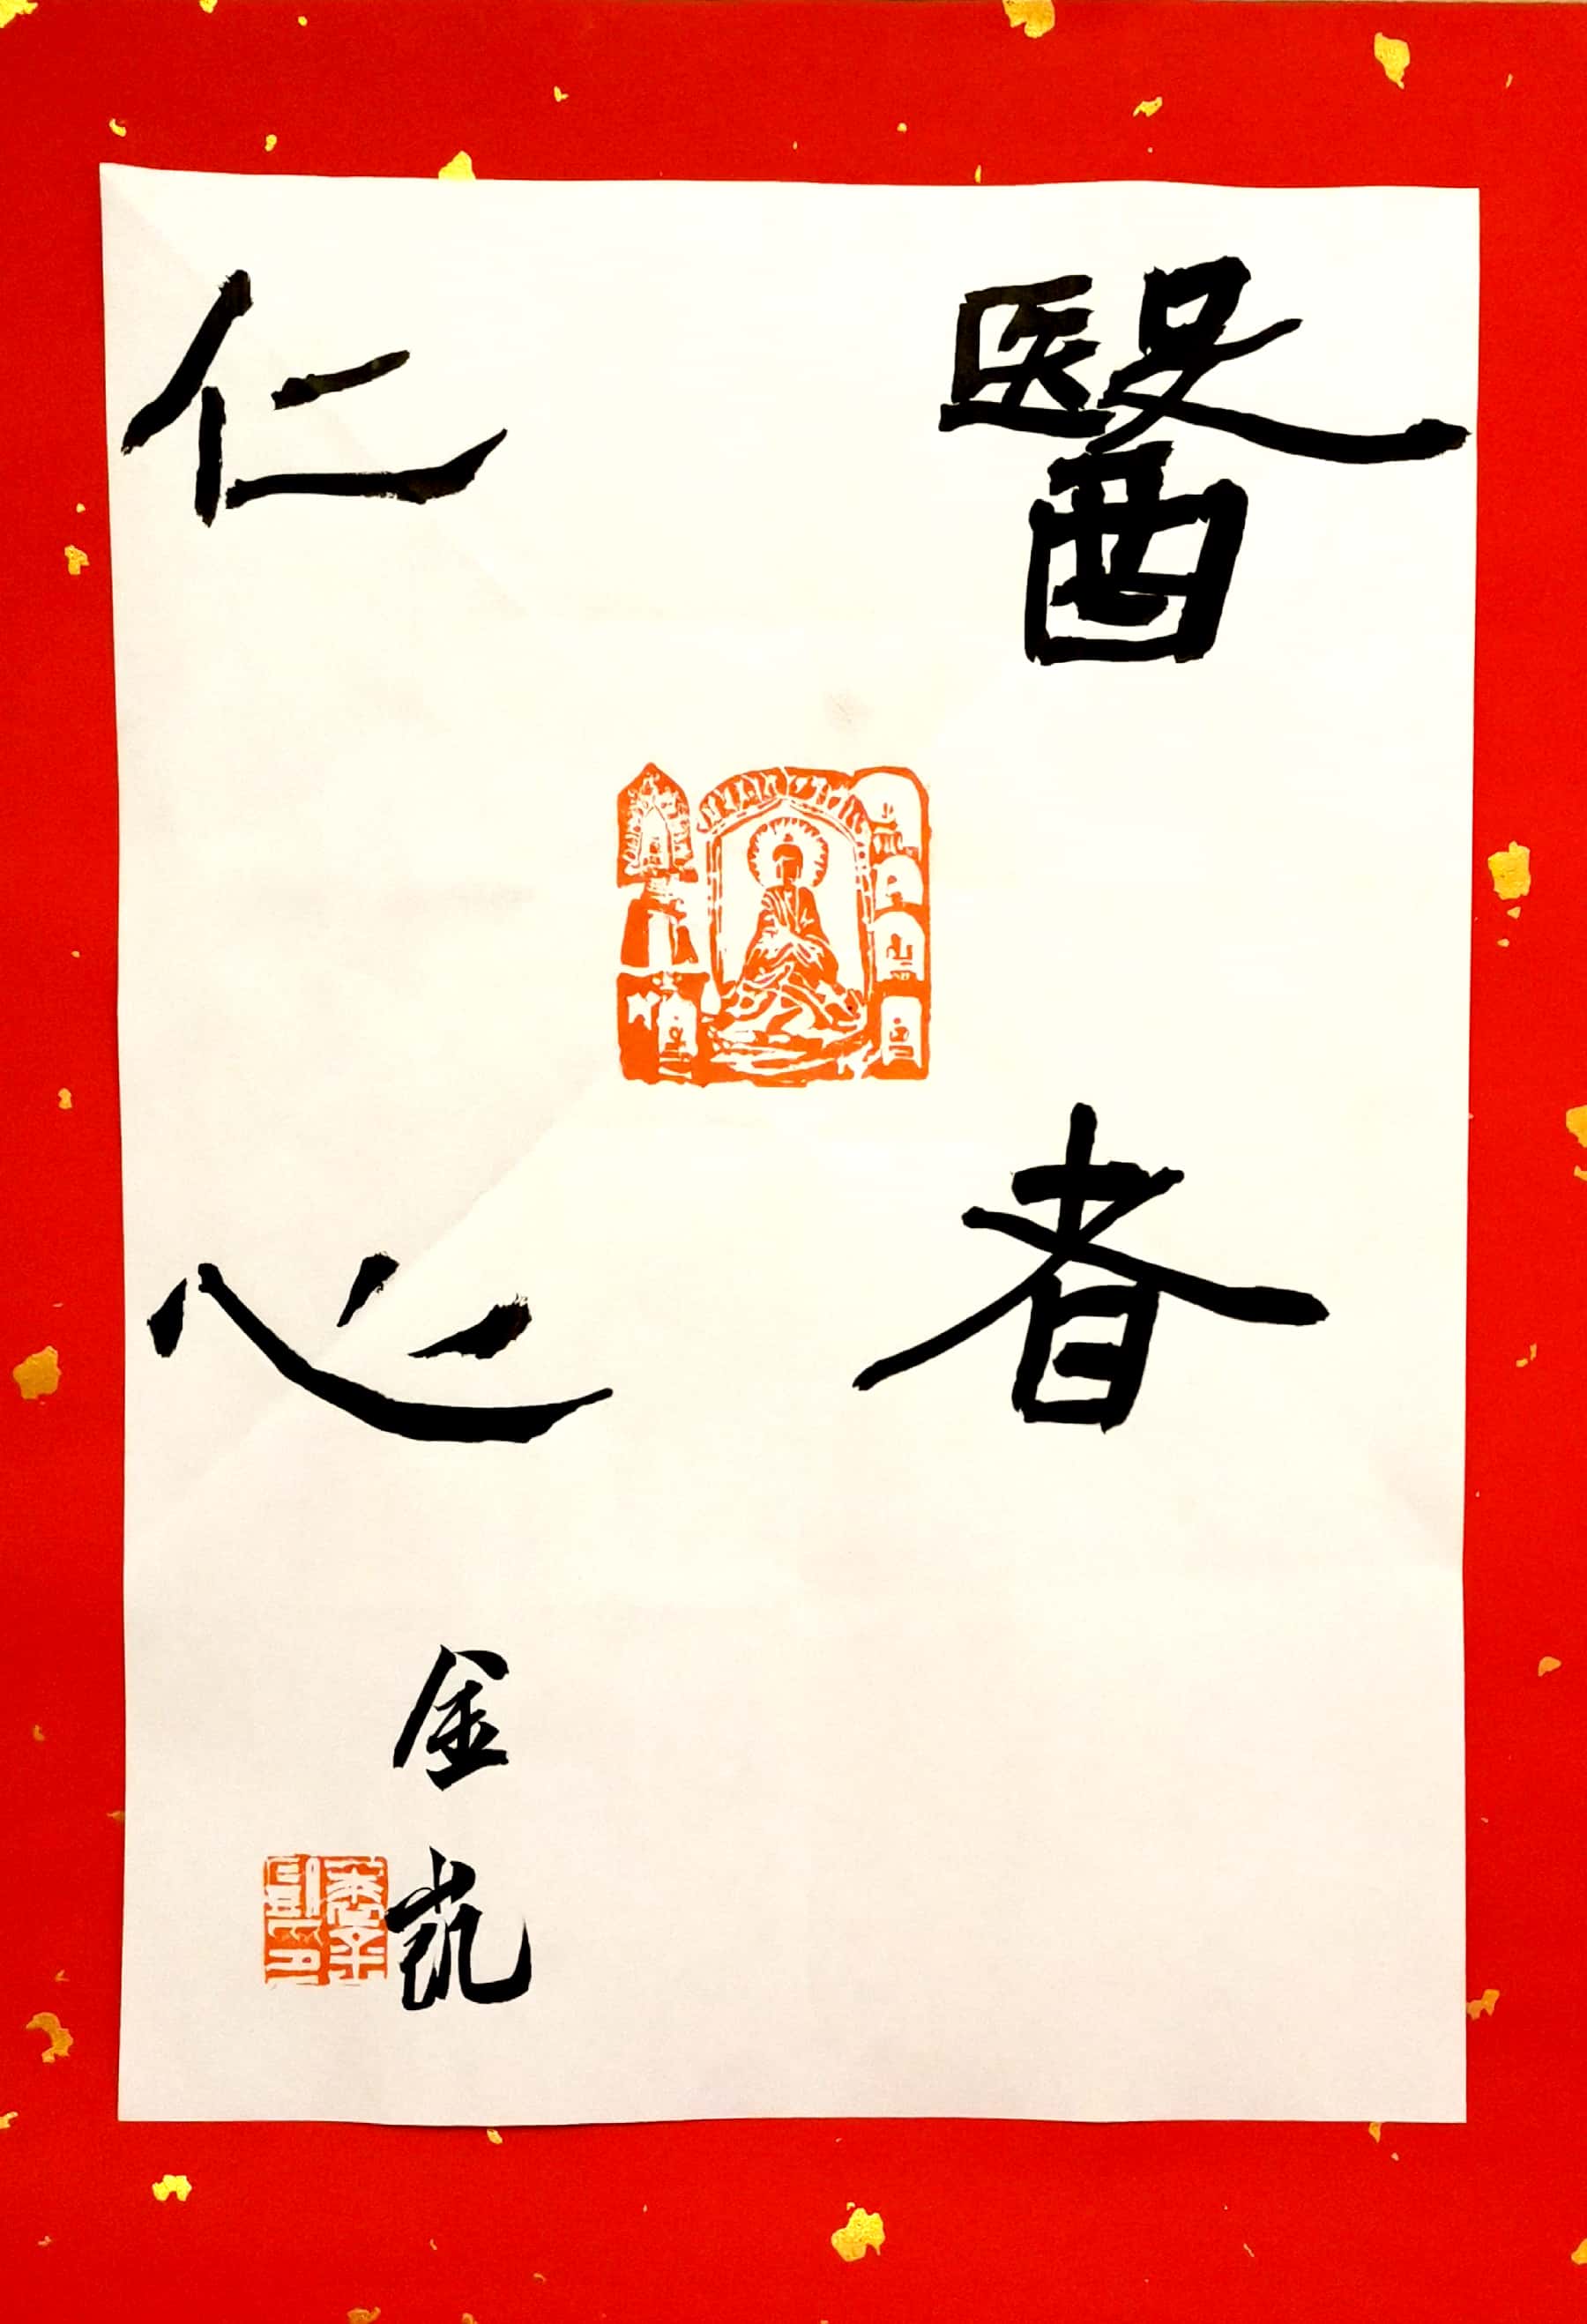 醫者
仁心
金凱